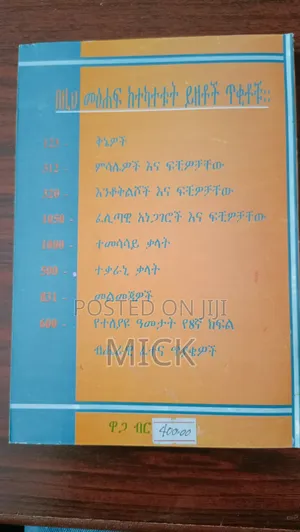 በዚህ መፅሐፍ ከተካተቱት ይዘቶች ጥቂቶቹ፡፡
ቅኔዎች
512 - ምሳሌዎች እና ፍቺዎቻቸው
520 - እንቆቅልሾች እና ፍቺዎቻቸው
1050 - ፈሊጣዊ አነጋገሮች እና ፍቺዎቻቸው
1000 - ተመሳሳይ ቃላት
500 - ተቃራኒ ቃላት
831 - መልመጃዎች
POSTED ON JIJI
600 - የተለያዩ ዓመታት የ8ኛ ክፍል
MICK
ብሔራዊ ፈተና ጥያቄዎች
ዋጋ ብር 400.00